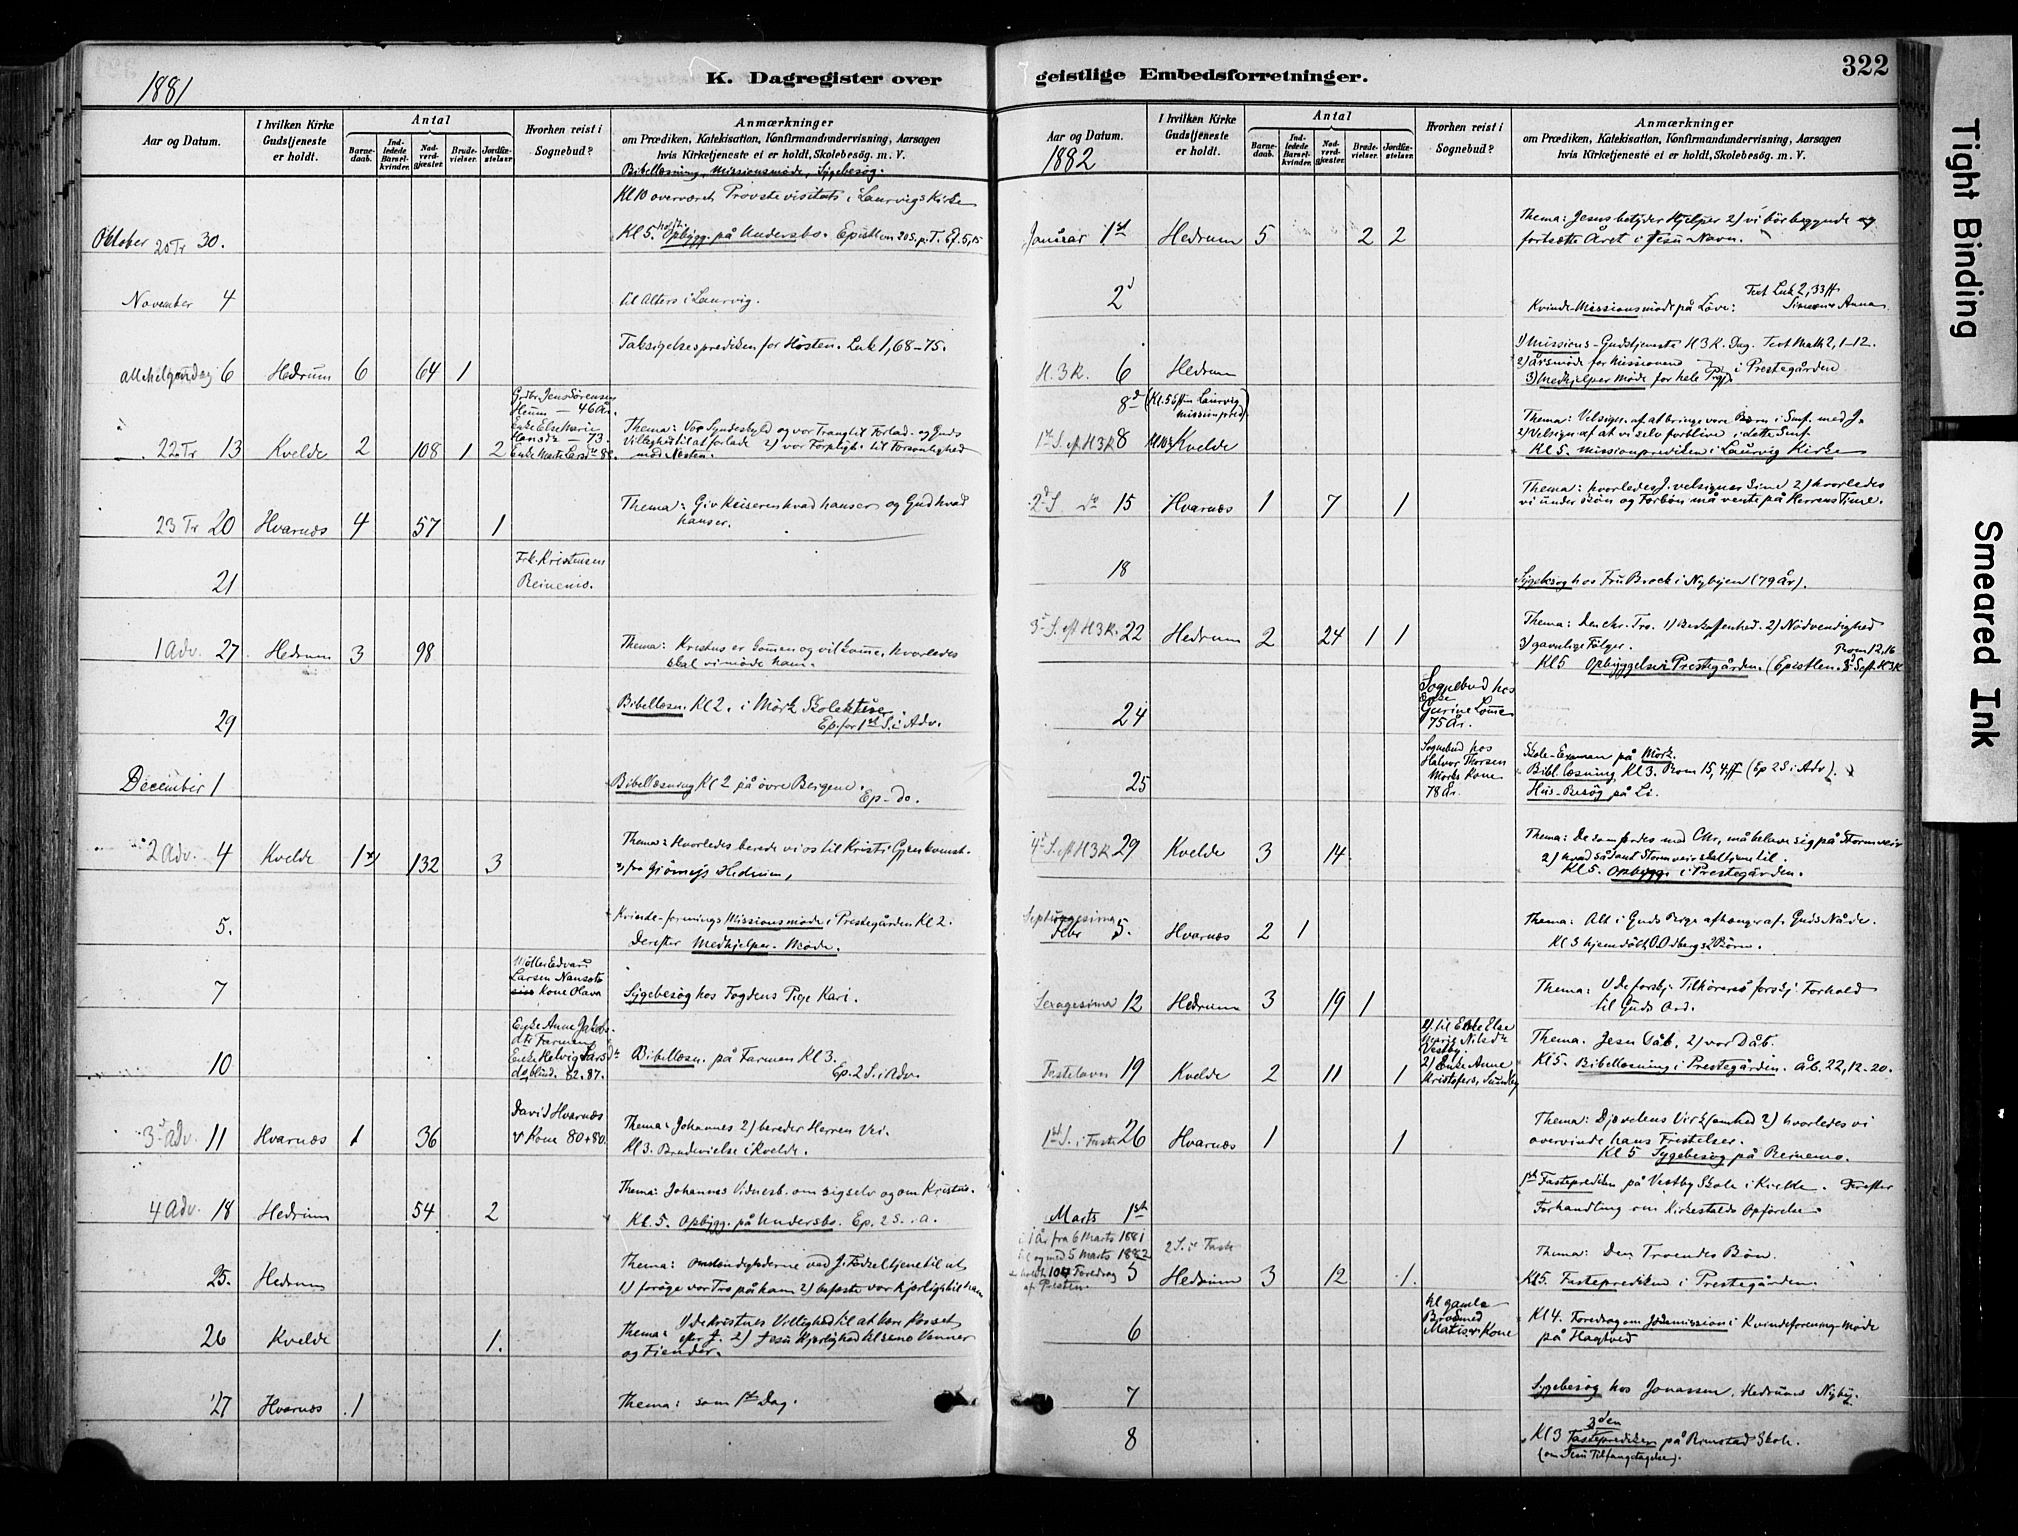 1881
K. Dagregister over
Aar og Datum.
I hvilken Kirke Gudstjeneste er holdt.
Antal
Barnedaab.
Indledede Barselkvinder.
Nadverdgjæster.
Brudevielser.
Jordfæstelser.
Hvorhen reist i Sognebud?
Anmærkninger
om Prædiken, Katekisation, Konfirmandundervisning, Aarsagen
hvis Kirketjeneste ei er holdt, Skolebesøg. m. V.
Bibellæsning, Missionsmøde, Sygebesøg.
Kl 10 overværet Provstevisitats i Laurvigs Kirke
Oktober 20 Tr 30.
Kl 5. holdt Opbygg. på Undersbo. Epistl on 20 S. p. T. Ef. 5, 15
November 4
til Alters i Laurvig.
Taksigelsesprediken for Høsten. Luk 1, 68-75.
Allehelgensdag 6 Hedrum 6 64 1
Grdbr. Jens Sørensen
Heum - 46 År.
Enke Else Marie
Hansdr - 73.
Thema: Vor Syndeskyld og vor Trang til Forlad. og Guds
22 Tr 13 Kvelde 2 108 1 2
Villighed til at forlade 2) vor Forpligt. til Forsonlighed
mod Nesten.
Thema: Giv Keiseren hvad hans er og Gud hvad
23 Tr 20 Hvarnæs 4 57 1
hans er.
21 Frk. Kristensen
Reinemo.
1 Adv. 27 Hedrum 3 98
Thema: Kristus er kommen og vil komme, hvorledes
skal vi møde ham.
29
Bibellæsn. Kl 2. i Mørk Skolehus.
Ep. for 1st S. i Adv.
December 1
Bibellæsning Kl 2 på øvre Bergene.
Ep - do.
2 Adv. 4 Kvelde 1 132 3
Thema: Hvorledes berede vi os til Kristi Gjenkomst.
5.
Kvinde-forenings Missionsmøde i Prestegården Kl 2.
Derefter Medhjelper-Møde.
7
Larsen Nansets
Kone Olava
Sygebesøg hos Fogdens Pige Kari.
10
Enke Anne Jakobsdtr Farmen
Bibellæsn. på Farmen Kl 3.
Ep. 2 S. i Adv.
3 Adv. 11 Hvarnæs 1 36
David Hvarnæs
& Kone 80+80.
Thema: Johannes 2) bereder Herren Vei.
Kl 3. Brudevielse i Kvelde.
4 Adv. 18 Hedrum 54 2
Thema: Johannes Vidnesb. om sig selv og om Kristus.
Kl. 5. Opbygg. på Undersbo. Ep. 2 S. i a.
25. Hedrum
Thema: Omstændighederne ved J. Fødsel tjene til at
1) forøge vor Tro på ham 2) befæste vor Kjærlighet til ham
26 Kvelde 1.
Thema: 1) de Kristnes Villighed til at bær Korset
efter J. 2) Jesu Kjærlighed til sine Venner
og Fiender.
27 Hvarnæs 1
Thema: som 1ste Dag.
geistlige Embedsforretninger.
322
Aar og Datum.
1882
I hvilken Kirke Gudstjeneste er holdt.
Antal
Barnedaab.
Indledede Barselkvinder.
Nadverdgjæster.
Brudevielser.
Jordfæstelser.
Hvorhen reist i Sognebud?
Anmærkninger
om Prædiken, Katekisation, Konfirmandundervisning, Aarsagen
hvis Kirketjeneste ei er holdt, Skolebesøg. m. V.
Januar 1st Hedrum 5 2 2
Thema: Jesus betyder Hjelper 2) vi bør begynde og
fortsætte Året i Jesu Navn.
2d
Text Luk 2, 33 ff
Kvinde-Missionsmøde på Løve: Simeon & Anna
H. 3 K. 6 Hedrum
1) Missions-Gudstjeneste H 3 K. Dag. Text Math 2, 1-12.
2) årsmøde for Missionen i Prestegården
3) Medhjelper Møde for hele Prgj.
8d (Kl. 5 Eftm Laurvig
missionspred.)
1st S. eft H 3 K 8 Kl 10½ Kvelde
Thema: Velsign. af at bringe vore Børn i Smf. med J.
2) Velsign af at vi selv forblive i dette Smf
Kl 5. Missionsprediken i Laurvig Kirke
2d S. do 15 Hvarnæs 1 7 1
Thema: hvorledes J. velsigner Sine 2) hvorledes
vi under Bøn og Forbøn må vente på Herrens Time.
18
Sygebesøg hos Fru Brock i Nybyen (79 år).
3d S. eft H 3 K. 22 Hedrum 2 24 1 1
Thema: Den chr. Tro. 1) Beskaffenhed. 2) Nødvendighed
3) gavnlige Følger. Rom 12. 16
Kl 5 Opbyggelse i Prestegården. (Epistlen. 3d S eft. H 3 K
24
Sognebud hos
Enke
Gurine Lomme
75 År.
25
Sognebud hos
Halvor Thorsen
Mørks Kone
78 År.
Skole-Examen på Mørk.
Bibl. læsning Kl 3. Rom 15, 4 ff (Ep 2 S i Adv).
Hus-Besøg på Li.
4d S. eft H 3 K 29 Kvelde 3 14
Thema: De som ferdes med Chr. må belave sig på Stormveir
2) hvad sådant Stormveir skal tjene til.
Kl 5. Opbygg. i Prestegården.
Septuagesima
Febr 5. Hvarnæs 2 1
Thema: Alt i Guds Rige afhænger af Guds Nåde.
Kl 3 hjemdøbt O. Odbergs 2 Børn.
Sexagesima 12 Hedrum 3 19 1
Thema: De forskj. Tilhøreres forskj. Forhold
til Guds Ord.
Fastelavn 19 Kvelde 2 11 1
1) til Enke Else
Marie Nilsdtr
Vestby.
2) Enke Anne
Kristofers. Sundby
Thema. Jesu Dåb. 2) vor Dåb.
Kl 5. Bibellæsning i Prestegården. Åb. 22, 12-20.
1st S. i Faste 26 Hvarnæs 1 1
Thema: Djævelens Virksomhed 2) hvorledes vi
overvinde hans Fristelser.
Kl 5 Sygebesøg på Reinemo.
Marts 1st
1st Fasteprediken på Vestby Skole i Kvelde. Derefter
Forhandling om Kirkestalds Opførelse.
i 1 År fra 6 Marts 1881
til og med 5 Marts 1882
holdt 107 Foredrag
af Presten.
2 S. i Faste
5 Hedrum 3 12 1.
Thema: Den Troendes Bøn.
Kl 5. Fasteprediken i Prestegården.
6
til gamle
Matises Kone
Kl 4. Foredrag om Jødemission i Kvindeforening-Møde
på Hagtved
7
Sygebesøg hos Jonassen, Hedrums Nyby.
8
Kl 3 3den Fasteprediken på Rimstad Skole.
(om Jesu Tilfangetagelse).
Tight Binding
Smeared Ink